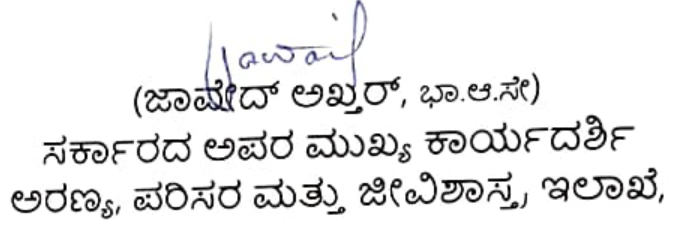 (ಜಾವೇದ್ ಅಖ್ತರ್, ಭಾ.ಆ.ಸೇ)
ಸರ್ಕಾರದ ಅಪರ ಮುಖ್ಯ ಕಾರ್ಯದರ್ಶಿ
ಅರಣ್ಯ, ಪರಿಸರ ಮತ್ತು ಜೀವಿಶಾಸ್ತ್ರ ಇಲಾಖೆ,